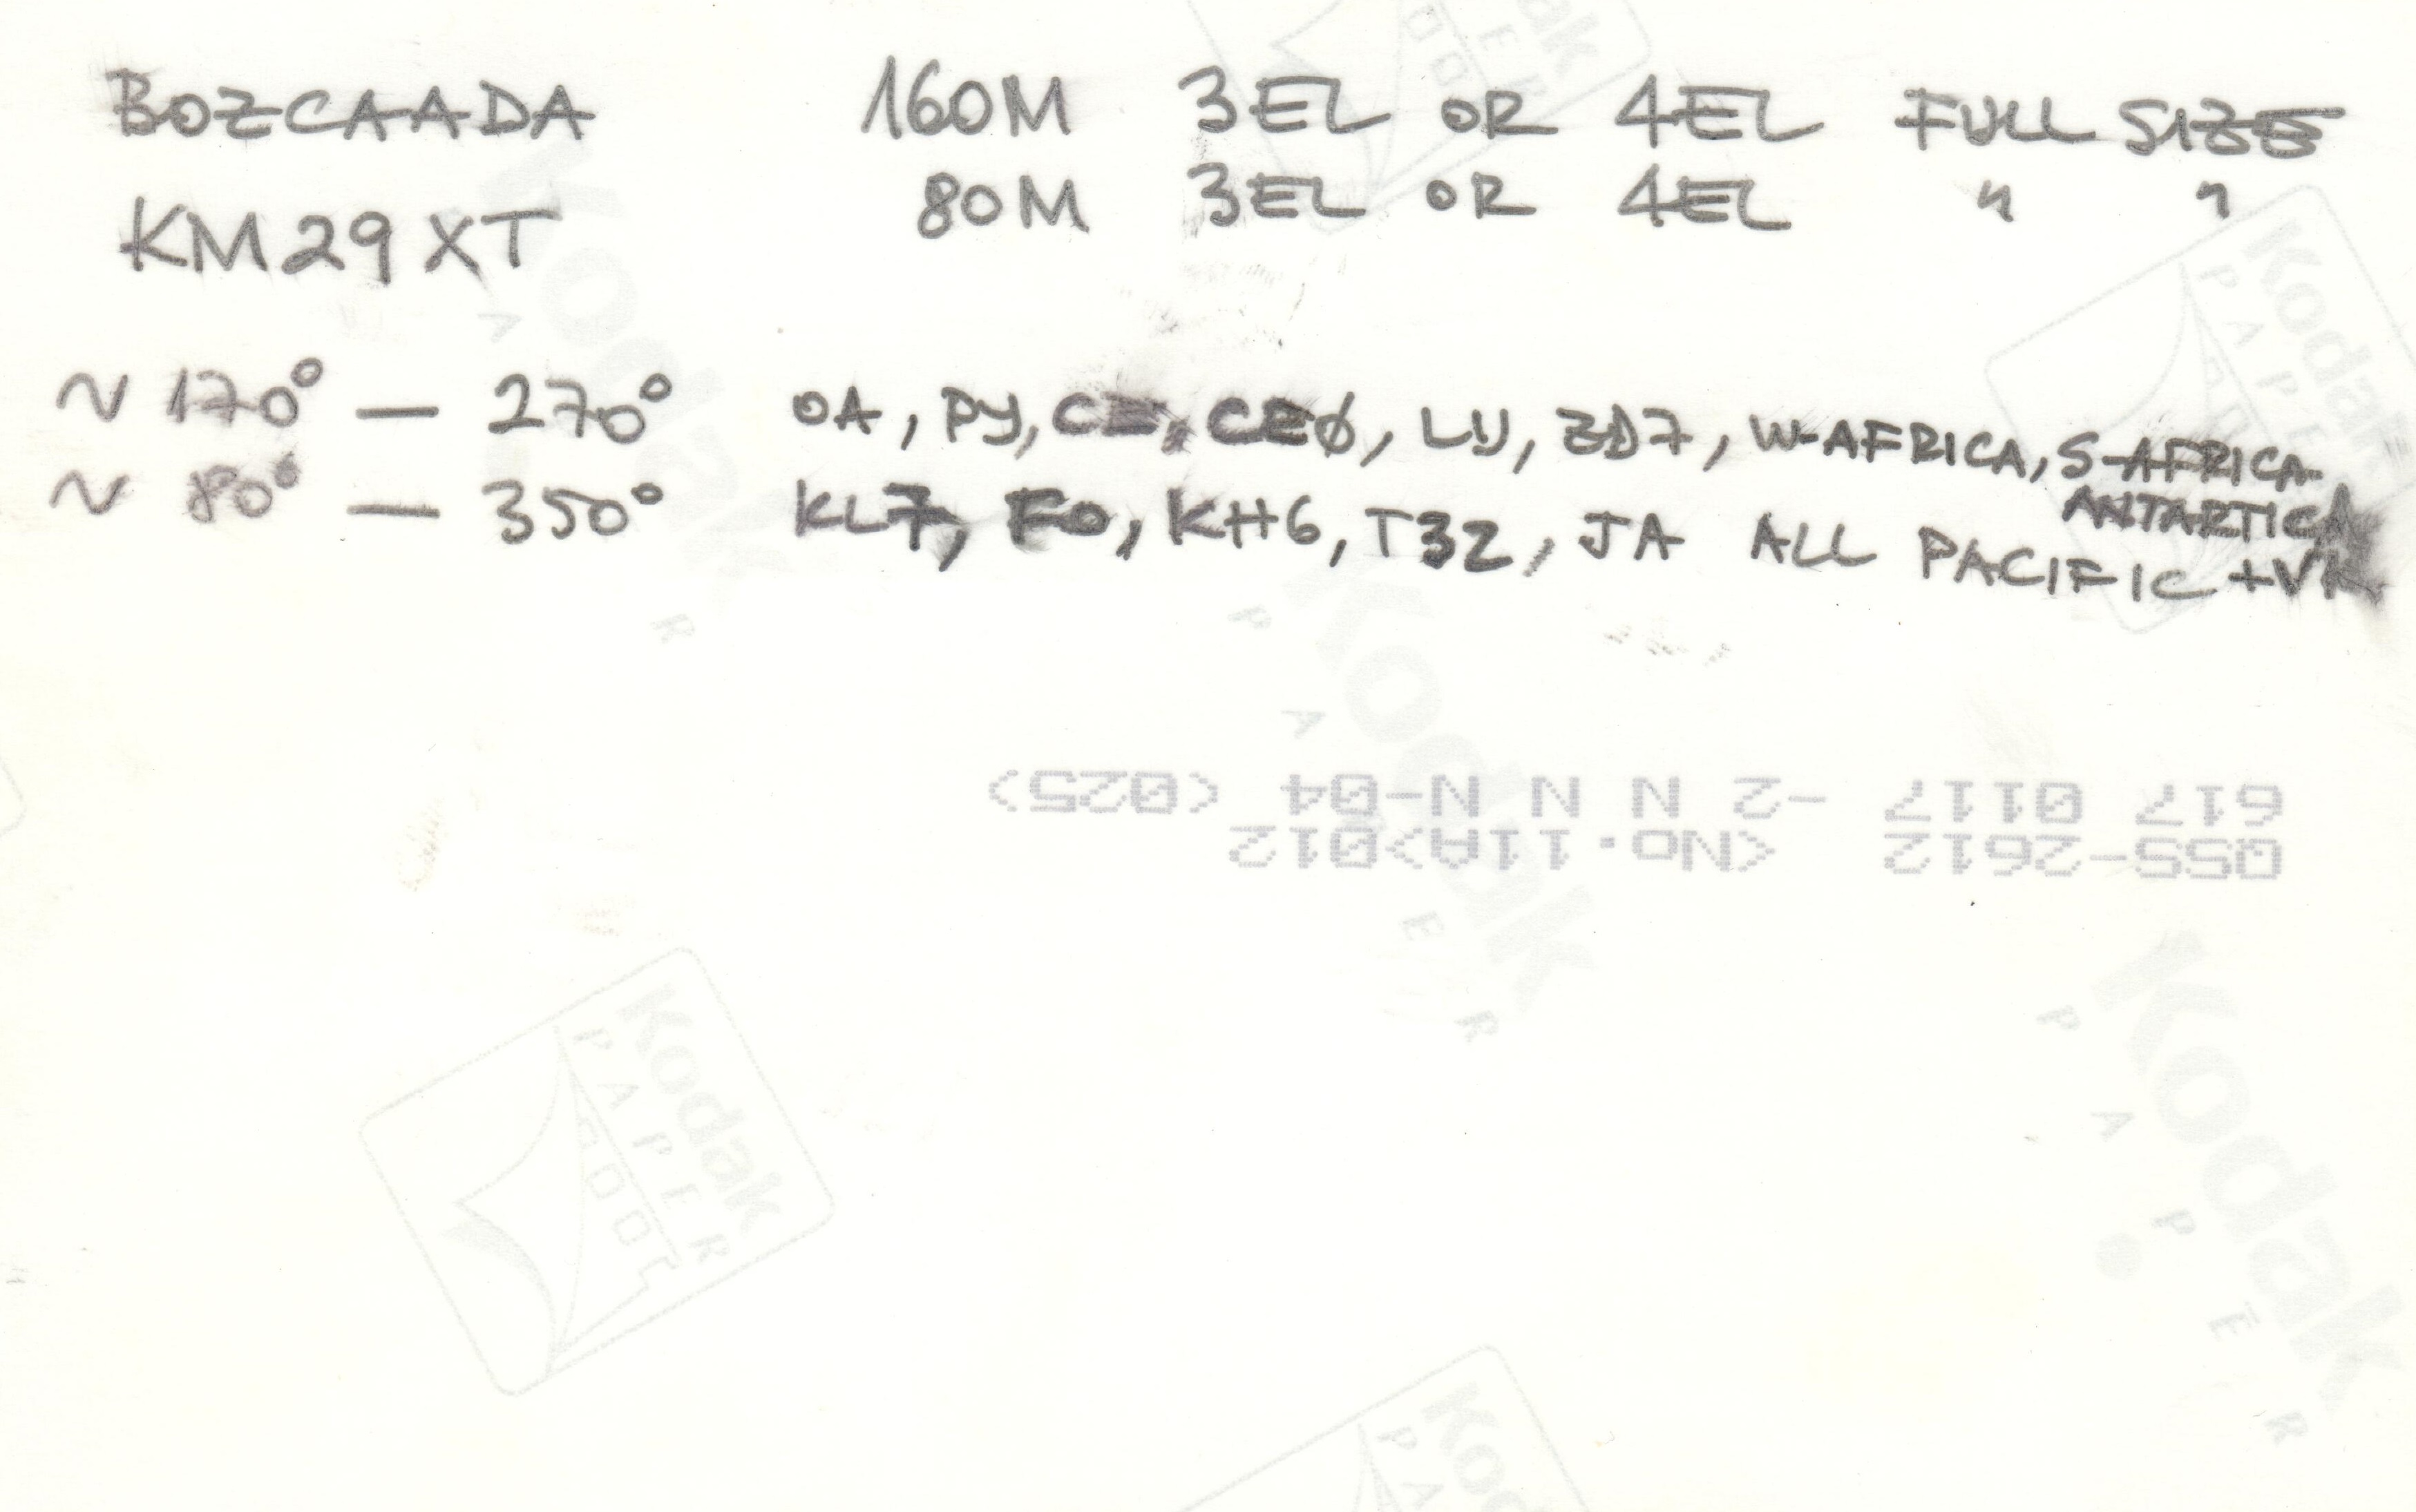 BOZCAADA 160M 3EL OR 4EL FULL SIZE
80M 3EL OR 4EL " "
KM29XT
~ 170° — 270° OA, PY, CE, CEØ, LU, ZD7, W-AFRICA, S-AFRICA
ANTARTICA
~ 80° — 350° KL7, FO, KH6, T32, JA ALL PACIFIC +VK
QSS-2612 <No.11A>012
617 0117 -2 N N N-04 <025>
Kodak
PAPER
Kodak
PAPER
Kodak
PAPER
Kodak
PAPER
Kodak
PAPER